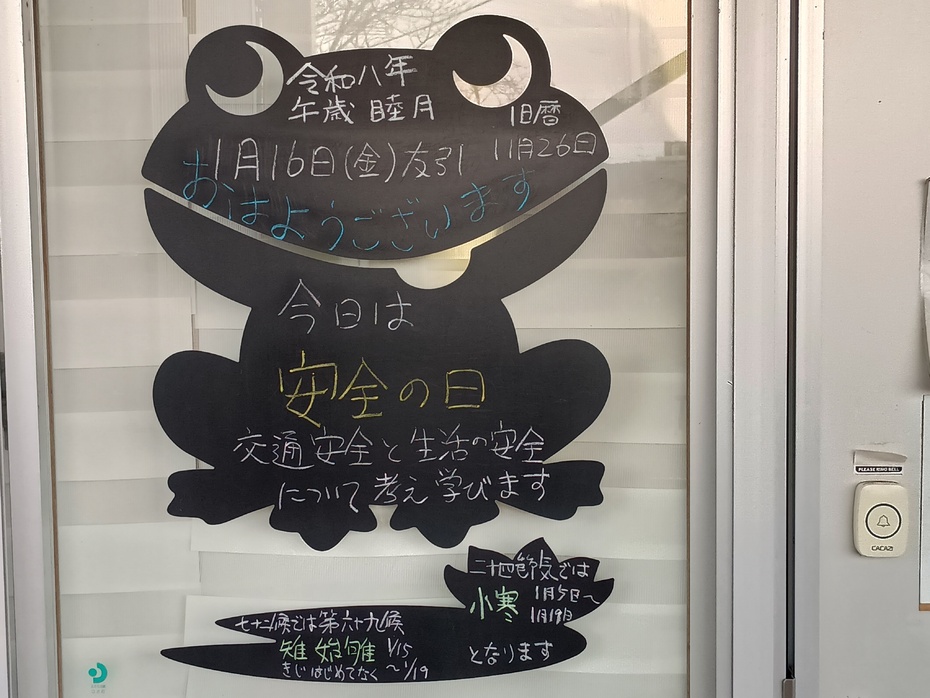 令和八年
午歳 睦月
旧暦
11月26日
1月16日(金)友引
おはようございます
今日は
安全の日
交通安全と生活の安全
について考え学びます
二十四節気では
小寒 1月5日～
1月19日
となります
七十二候では第六十九候
雉始雊 1/15
きじはじめてなく ～1/19
PLEASE RING BELL
CACAZI